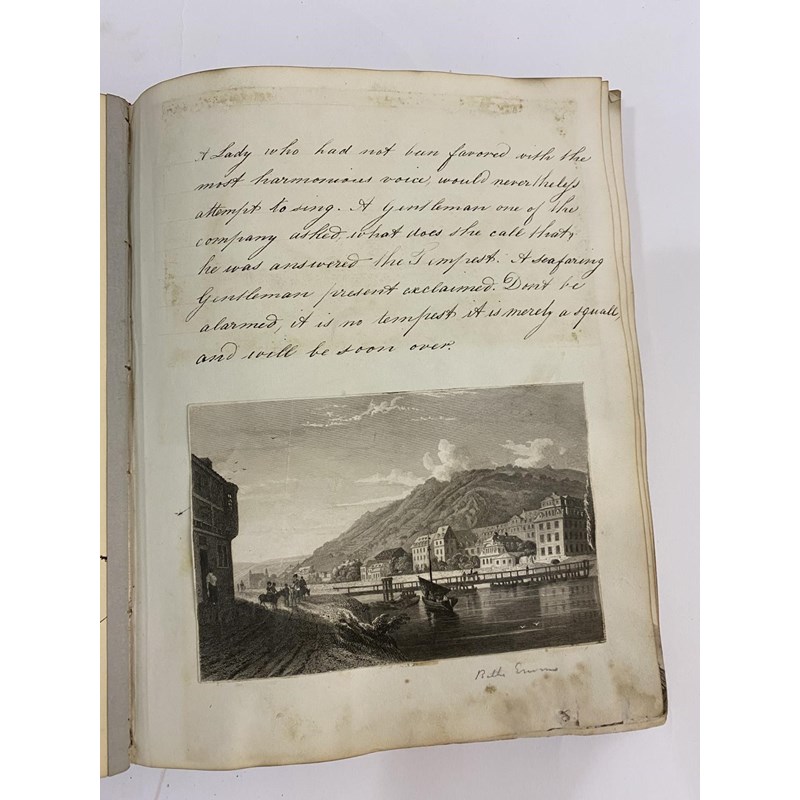 A Lady who had not been favored with the
most harmonious voice, would nevertheless
attempt to sing. A Gentleman one of the
company asked, what does she call that,
he was answered the Tempest. A seafaring
Gentleman present exclaimed. Dont be
alarmed, it is no tempest it is merely a squall,
and will be soon over.